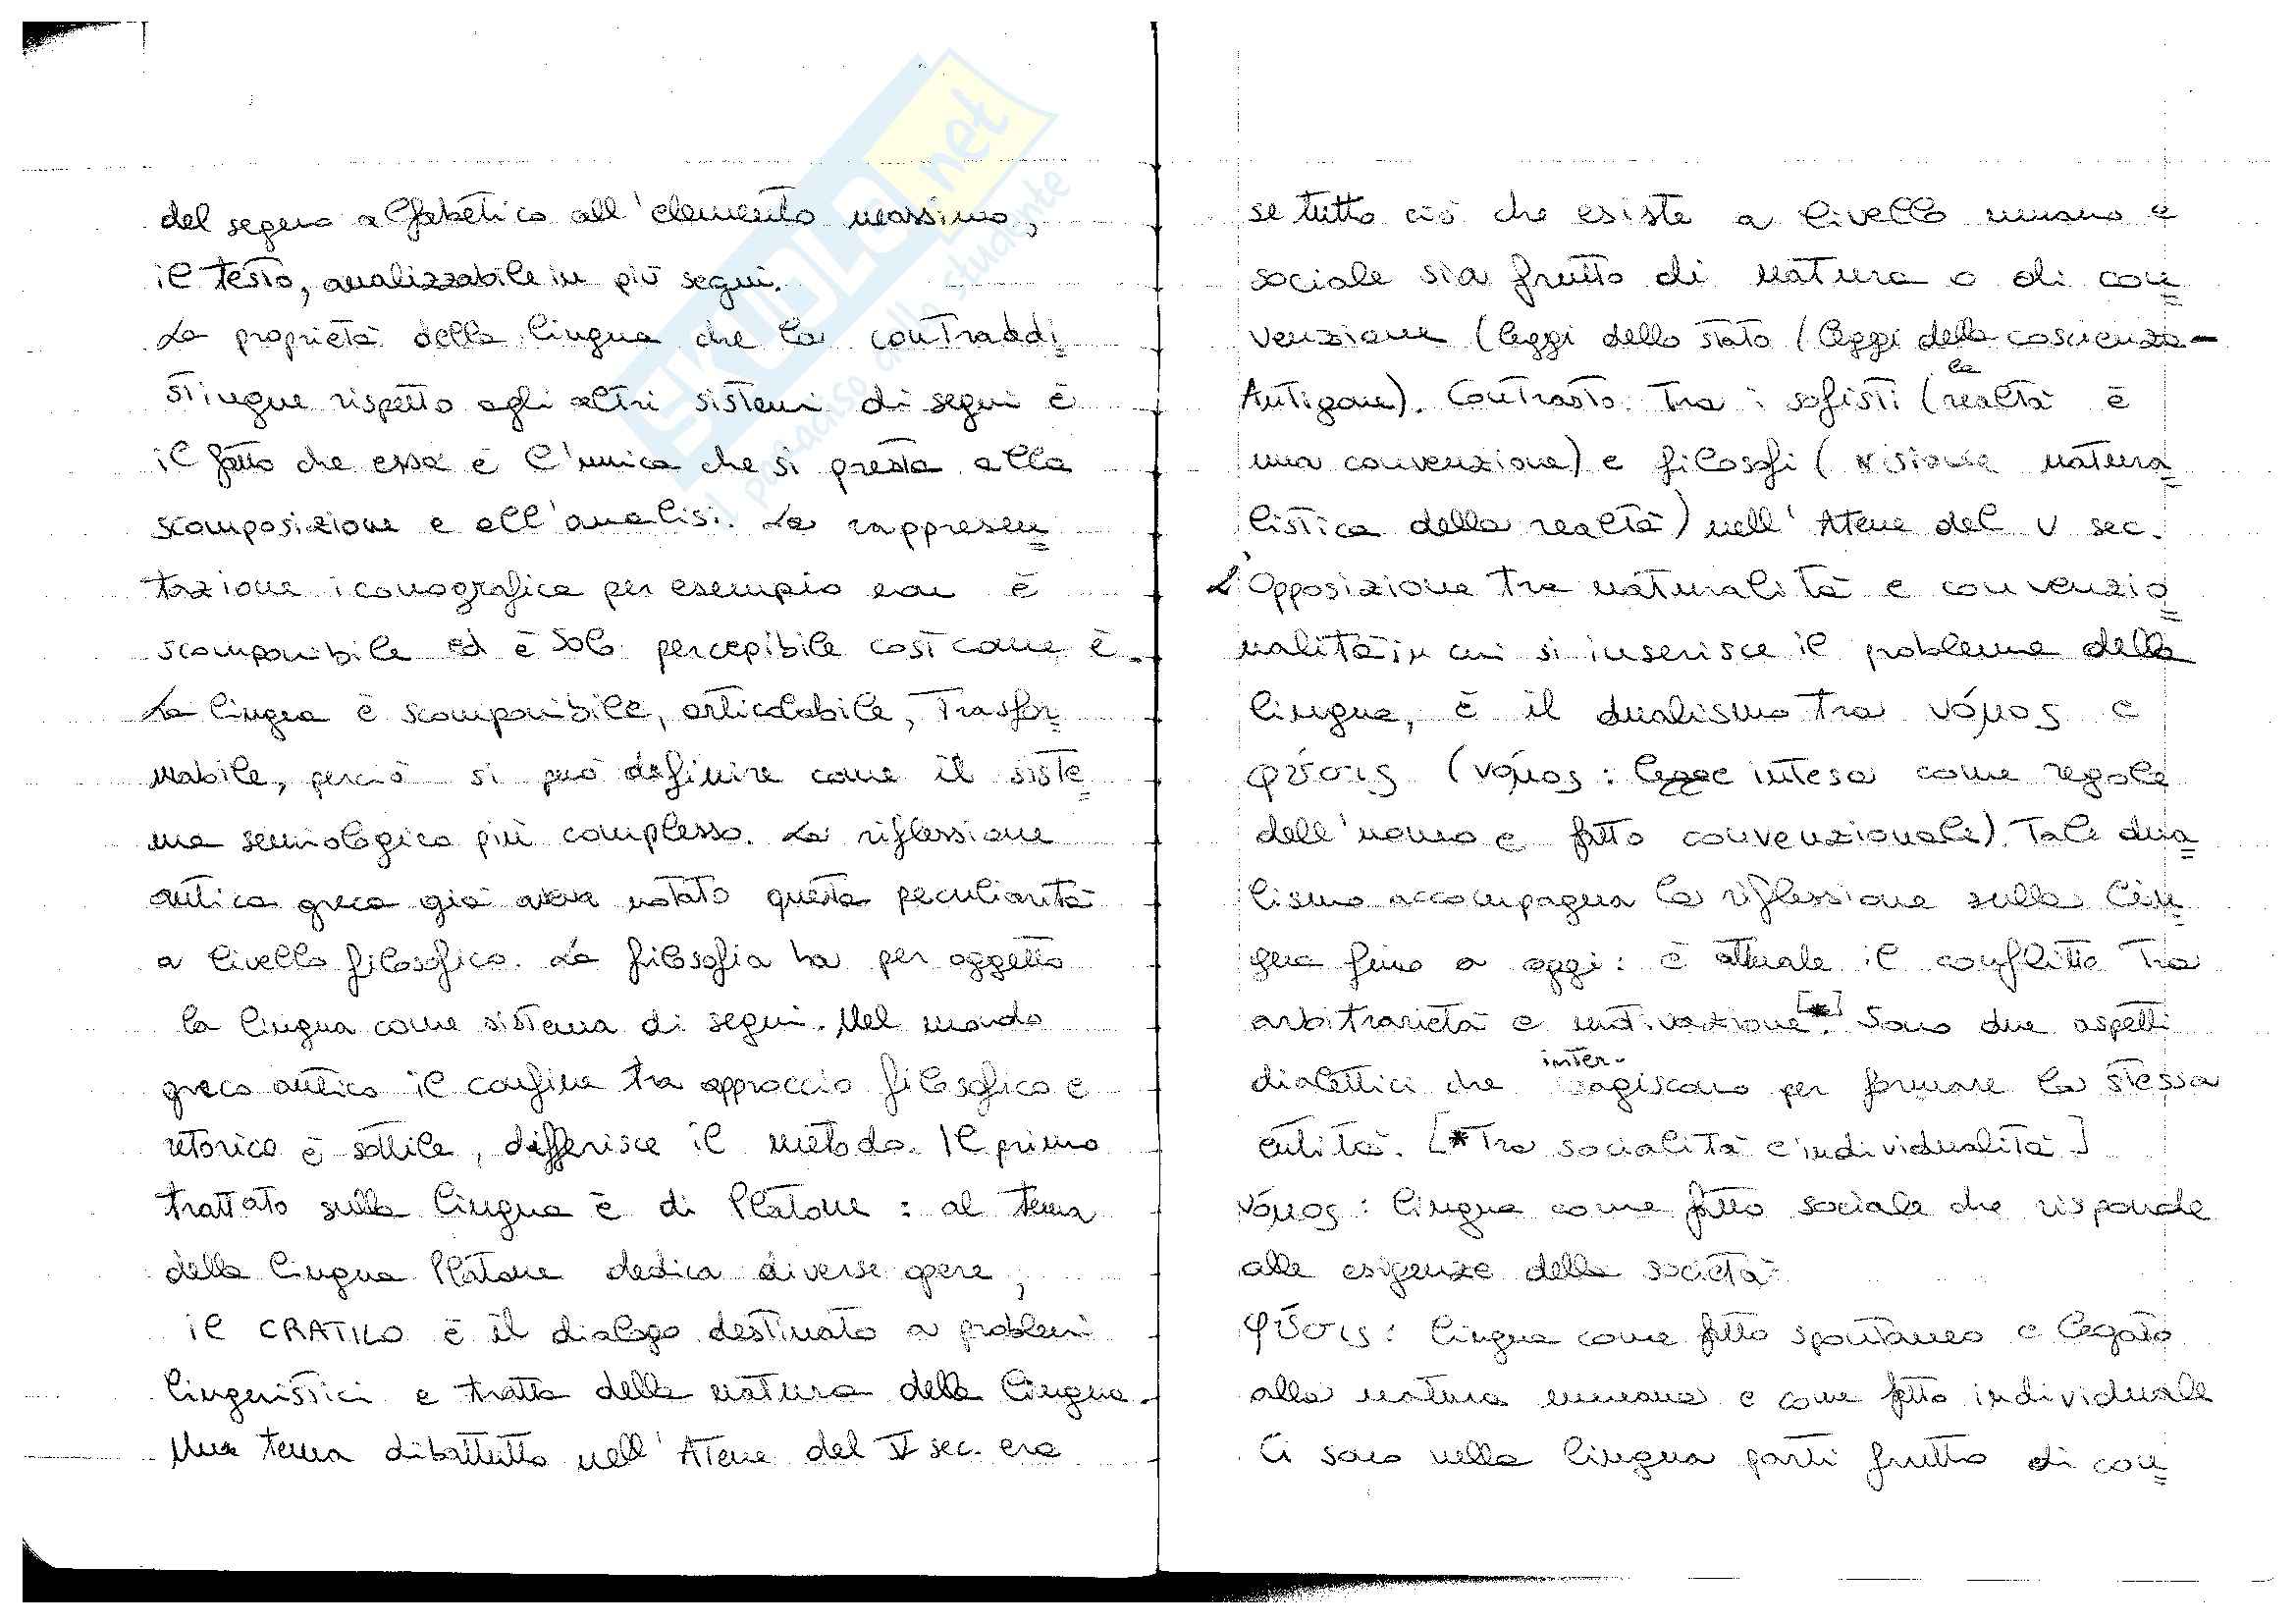 del segno alfabetico all'elemento massimo,
il testo, analizzabile in più segni.
La proprietà della lingua che la contraddi
stingue rispetto agli altri sistemi di segni è
il fatto che essa è l'unica che si presta alla
scomposizione e all'analisi. La rappresen=
tazione iconografica per esempio non è
scomponibile ed è solo percepibile così come è.
La lingua è scomponibile, articolabile, trasfor=
mabile, perciò si può definire come il siste=
ma semiologico più complesso. La riflessione
antica greca già aveva notato questa peculiarità
a livello filosofico. La filosofia ha per oggetto
la lingua come sistema di segni. Nel mondo
greco antico il confine tra approccio filosofico e
retorico è sottile, differisce il metodo. Il primo
trattato sulla lingua è di Platone : al tema
della lingua Platone dedica diverse opere,
il CRATILO è il dialogo destinato a problemi
linguistici e tratta della natura della lingua.
Una tema dibattuto nell'Atene del V sec. era
se tutto ciò che esiste a livello umano e
sociale sia frutto di natura o di con=
venzione (leggi dello stato / leggi della coscienza -
Antigone). Contrasto tra i sofisti (la realtà è
una convenzione) e filosofi (visione natura=
listica della realtà) nell'Atene del V sec.
L'opposizione tra naturalità e convenzio=
nalità in cui si inserisce il problema della
lingua, è il dualismo tra νόμος e
φύσις (νόμος : legge intesa come regola
dell'uomo e fatto convenzionale). Tale dua=
lismo accompagna la riflessione sulla lin=
gua fino a oggi: è attuale il conflitto tra
arbitrarietà e motivazione [*]. Sono due aspetti
dialettici che interagiscono per formare la stessa
entità. [* Tra socialità e individualità]
νόμος : lingua come fatto sociale che risponde
alle esigenze della società
φύσις : lingua come fatto spontaneo e legato
alla natura umana e come fatto individuale
Ci sono nella lingua parti frutto di con=
SKUOLA.net
il paradiso dello studente